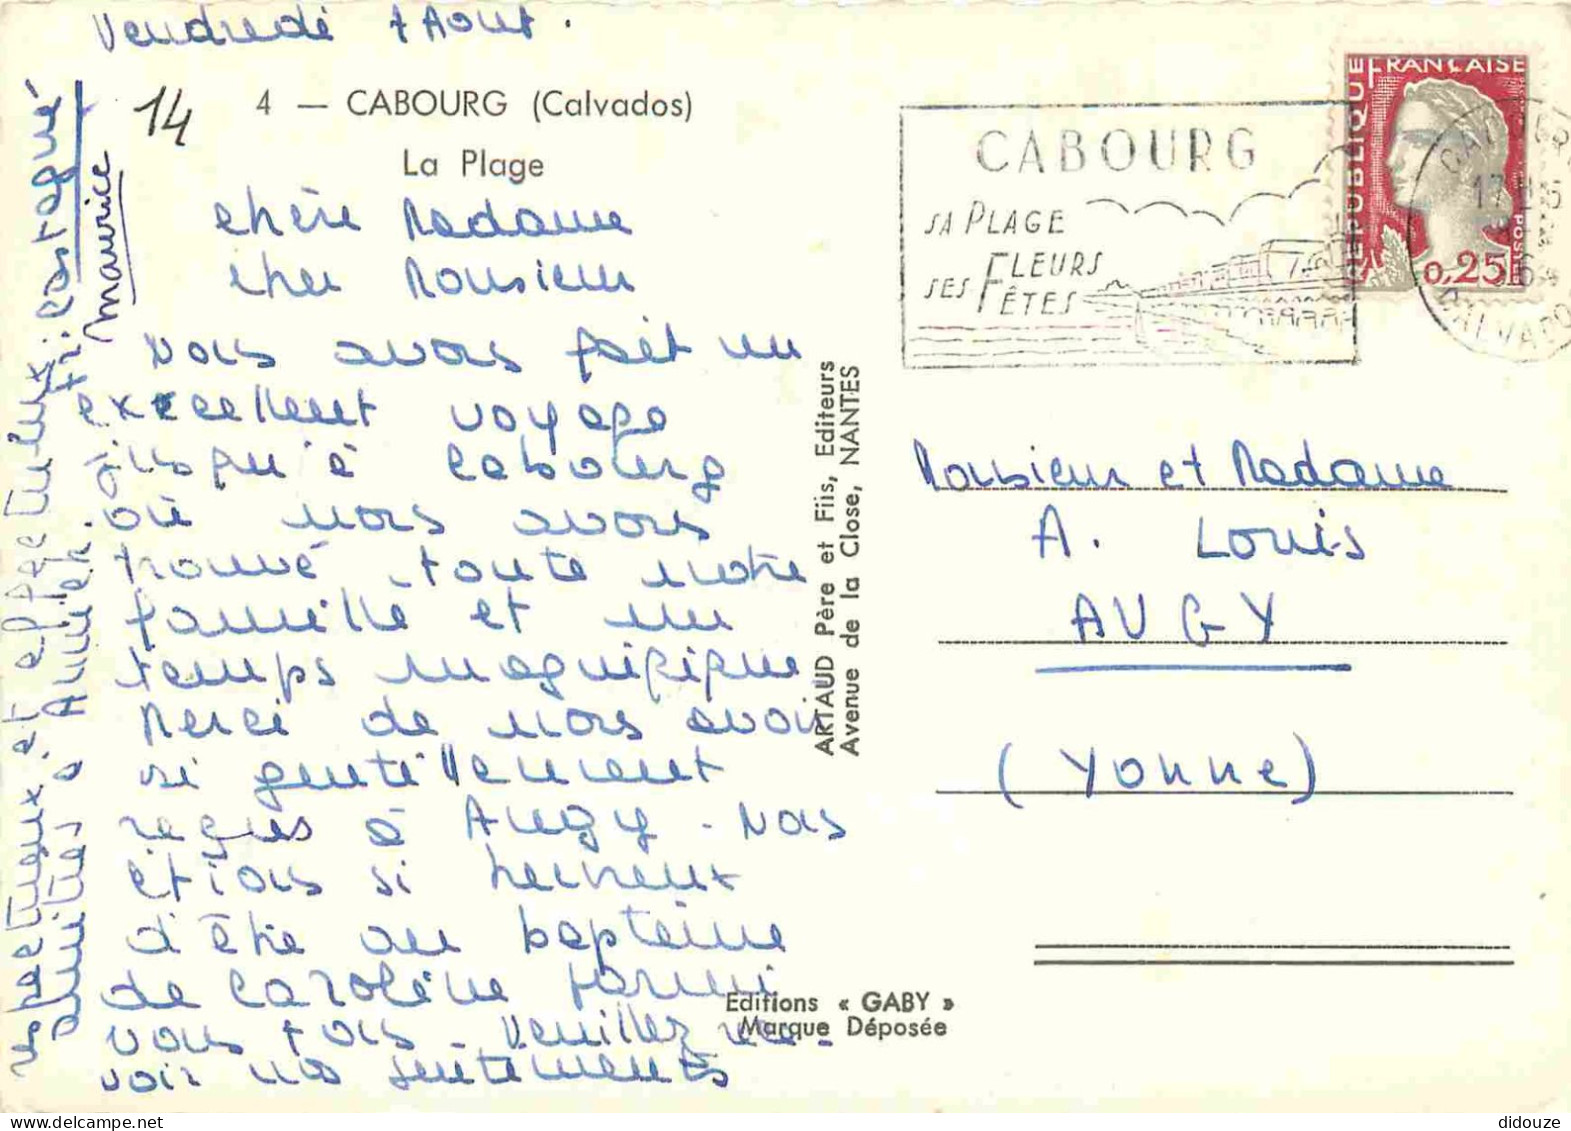 Vendredi 7 Aout.
14
4 — CABOURG (Calvados)
La Plage
chère Madame
cher Monsieur
Nous avons fait un
excellent voyage
jusqu'à Cabourg
où nous avons
trouvé toute notre
famille et un
temps magnifique
Merci de nous avoir
si gentillement
reçus à Augy - Nous
étions si heureux
d'être au bapteme
de Caroline parmi
vous tous - Veuillez rece-
voir nos sentiments
respectueux et affectueux.
amitiés à Annick.
Tr: Castagné
Maurice
ARTAUD Père et Fils, Editeurs
Avenue de la Close, NANTES
Editions « GABY »
Marque Déposée
CABOURG
SA PLAGE
SES FLEURS
FÊTES
REPUBLIQUE FRANÇAISE
0,25
POSTES
CABOURG
CALVADOS
Monsieur et Madame
A. Louis
AUGY
(Yonne)
didouze